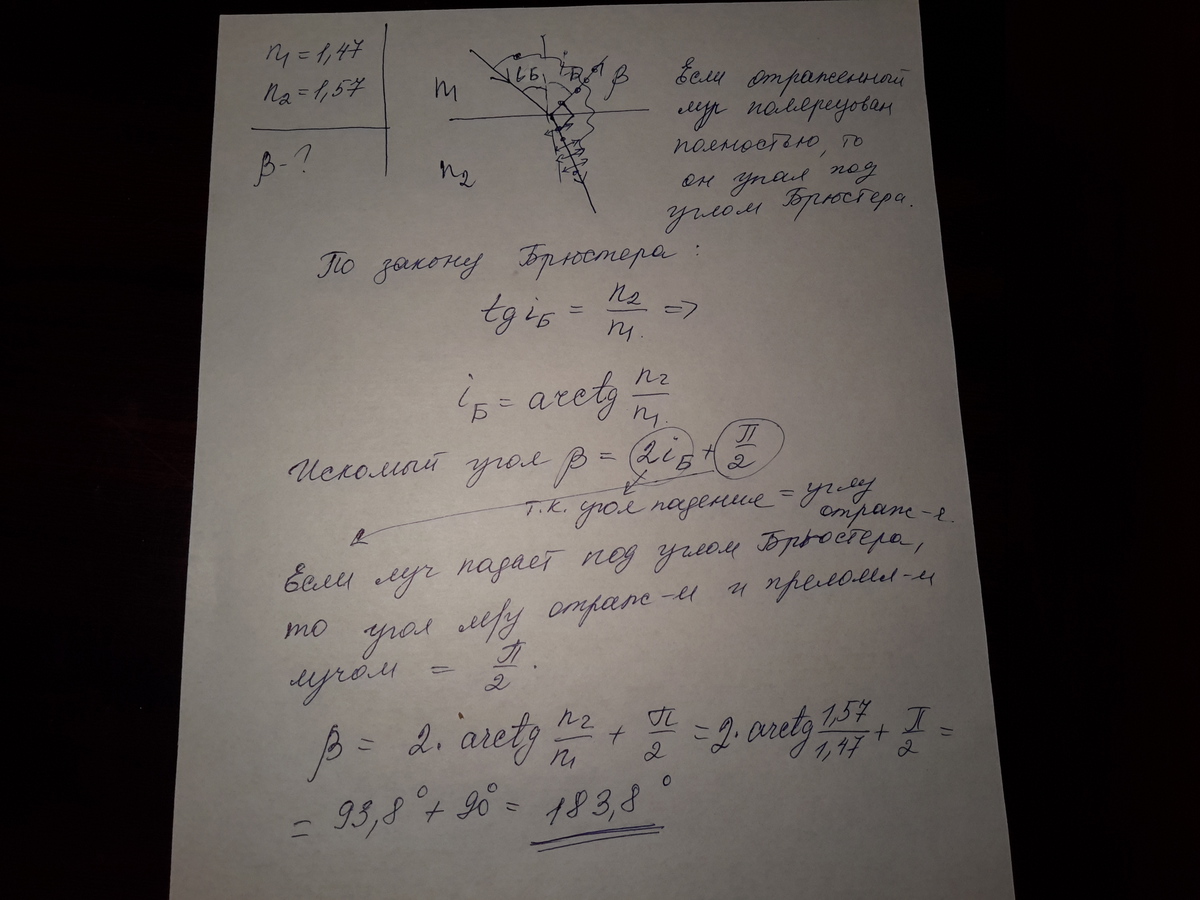 n1 = 1,47
n2 = 1,57
β - ?
n1
n2
iБ
iБ
β
Если отраженный
луч поляризован
полностью, то
он упал под
углом Брюстера.
По закону Брюстера:
tg iБ = n2/n1 =>
iБ = arctg n2/n1
Искомый угол β = 2iБ + π/2
т.к. угол падения = углу
отраж-я.
Если луч падает под углом Брюстера,
то угол м/у отраж-м и преломл-м
лучом = π/2.
β = 2 · arctg n2/n1 + π/2 = 2 · arctg 1,57/1,47 + π/2 =
= 93,8° + 90° = 183,8°